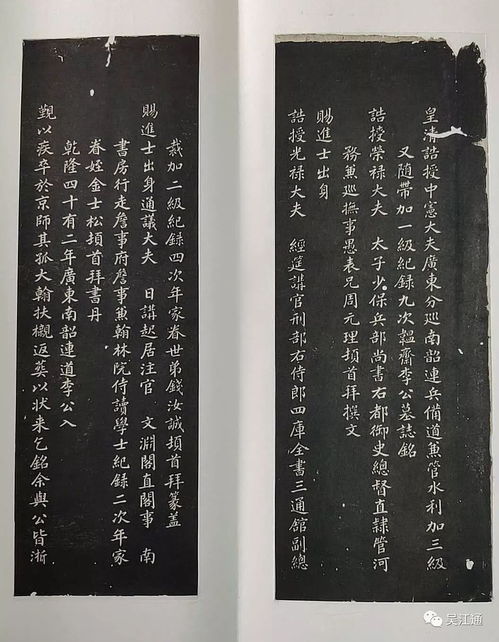 皇清誥授中憲大夫廣東分巡南韶連兵備道兼管水利加三級
又隨帶加一級紀錄九次韞齋李公墓誌銘
誥授榮祿大夫 太子少保兵部尚書右都御史總督直隸管河
務兼巡撫事愚表兄周元理頓首拜撰文
賜進士出身
誥授光祿大夫 經筵講官刑部右侍郎四庫全書三通館副總
裁加二級紀錄四次年家眷世弟錢汝誠頓首拜篆蓋
賜進士出身通議大夫 日講起居注官 文淵閣直閣事 南
書房行走詹事府詹事兼翰林院侍讀學士紀錄二次年家
眷姪金士松頓首拜書丹
乾隆四十有二年廣東南韶連道李公入
覲以疾卒於京師其孤大翰扶櫬返葬以狀来乞銘余與公皆浙
吴江通